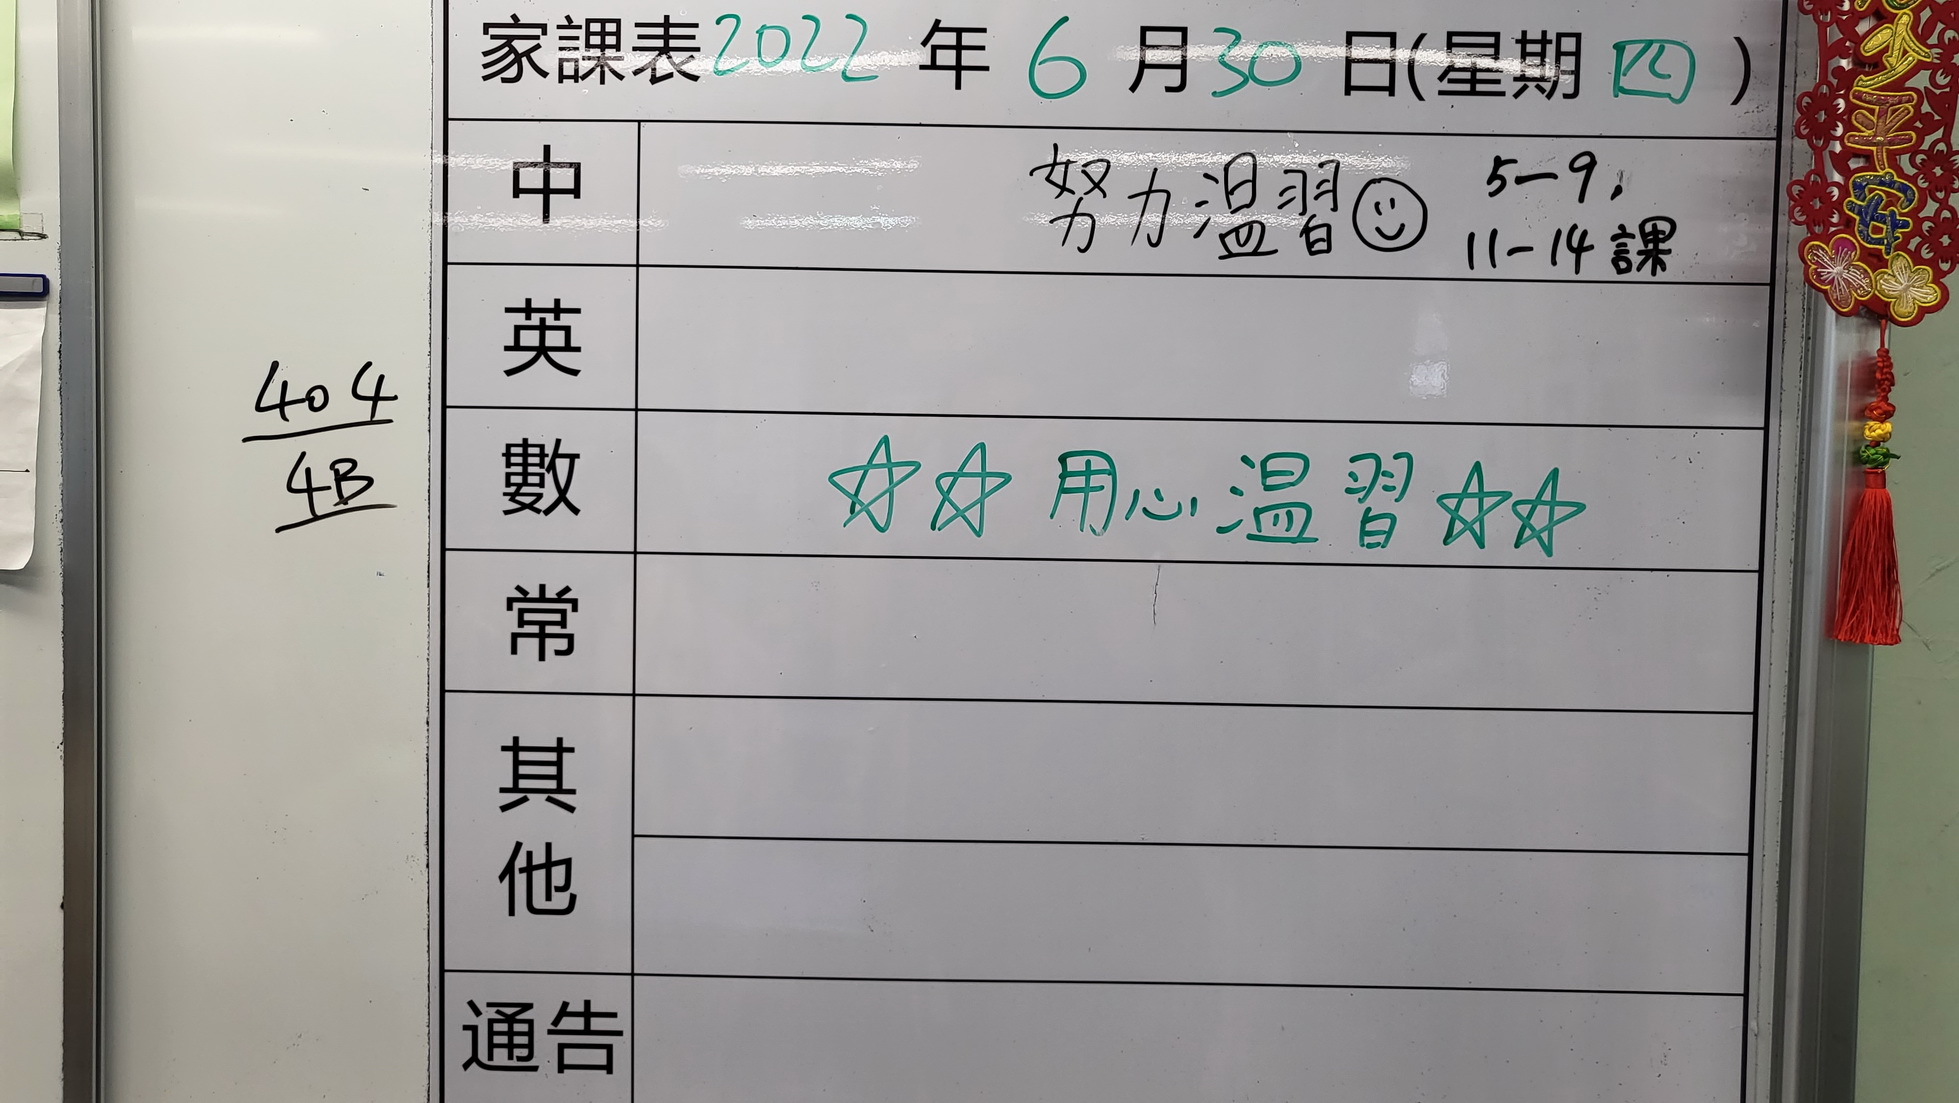 家課表2022年6月30日(星期四)
中
努力温習
5-9,
11-14課
英
404
4B
數
☆☆用心温習☆☆
常
其
他
通告
平
安